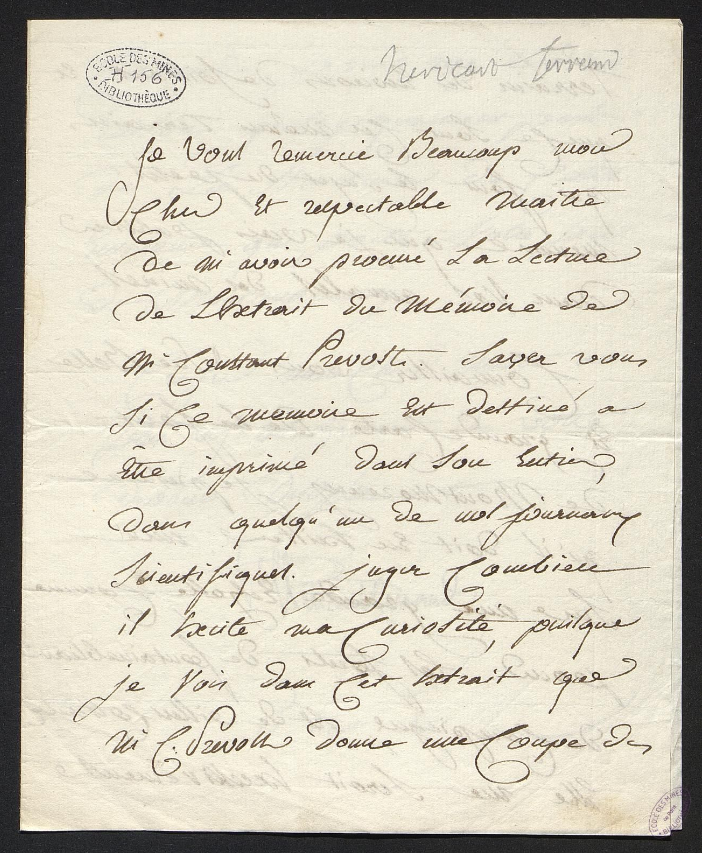 ECOLE DES MINES
H 156
BIBLIOTHÈQUE
je vous remercie Beaucoup mon
Cher Et respectable Maitre
de m'avoir procuré La Lecture
de L'Extrait du Mémoire de
Mr Constant Prevost. Savez vous
si Ce memoire Est destiné a
Etre imprimé dans Son Entier,
dans quelqu'un de nos journaux
Scientifiques. jugez Combien
il Excite ma Curiosité, puisque
je Vois dans Cet Extrait que
Mr C. Prevost donne une Coupe des
ECOLE DES MINES
BIBLIOTHÈQUE